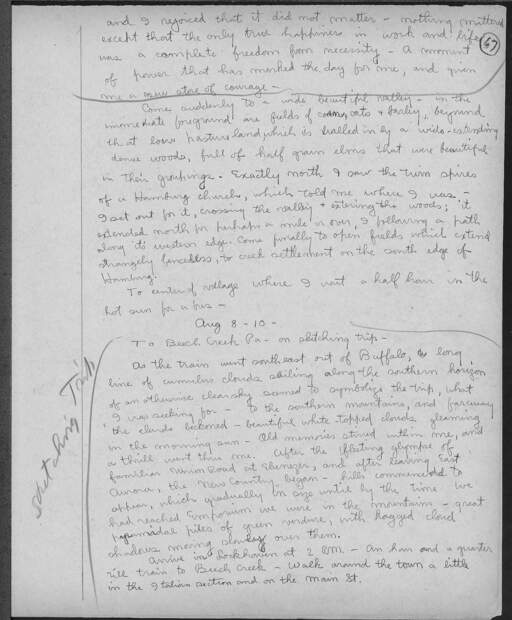 and I rejoiced that it did not matter - nothing mattered
except that the only true happiness in work and life
67
was a complete freedom from necessity - A moment
of power that has marked the day for me, and given
me a new store of courage -
Come suddenly to a wide beautiful valley - in the
immediate foreground are fields of corn, oats & barley, beyond
that low pasture land which is walled in by a wide-extending
dense woods, full of half grain elms that were beautiful
in their groupings. Exactly north I saw the twin spires
of a Hamburg church, which told me where I was. -
I set out for it, crossing the valley & entering the woods; it
extended north for perhaps a mile or over, I following a path
along its western edge. Come finally to open fields which extend
strangely fenceless, to creek settlement on the south edge of
Hamburg.
To center of village where I wait a half hour in the
hot sun for a bus -
Aug 8-10 -
To Beech Creek Pa - on sketching trip -
Sketching Trip
As the train went southeast out of Buffalo, a long
line of cumulus clouds sailing along the southern horizon
of an otherwise clear sky seemed to symbolize the trip, what
I was seeking for - To the southern mountains, and faraway
the clouds beckoned - beautiful white topped clouds gleaming
in the morning sun - Old memories stirred within me, and
a thrill went thru me. After the fleeting glimpse of
familiar Union Road at Ebenezer, and after leaving East
Aurora, the New Country began - hills commenced to
appear, which gradually in size until by the time we
had reached Emporium we were in the mountains - great
pyramidal piles of green verdure, with ragged cloud
shadows moving slowly over them.
Arrive in Lockhaven at 2 P.M. - An hour and a quarter
till train to Beech Creek - Walk around the town a little
in the Italian section and on the main St.